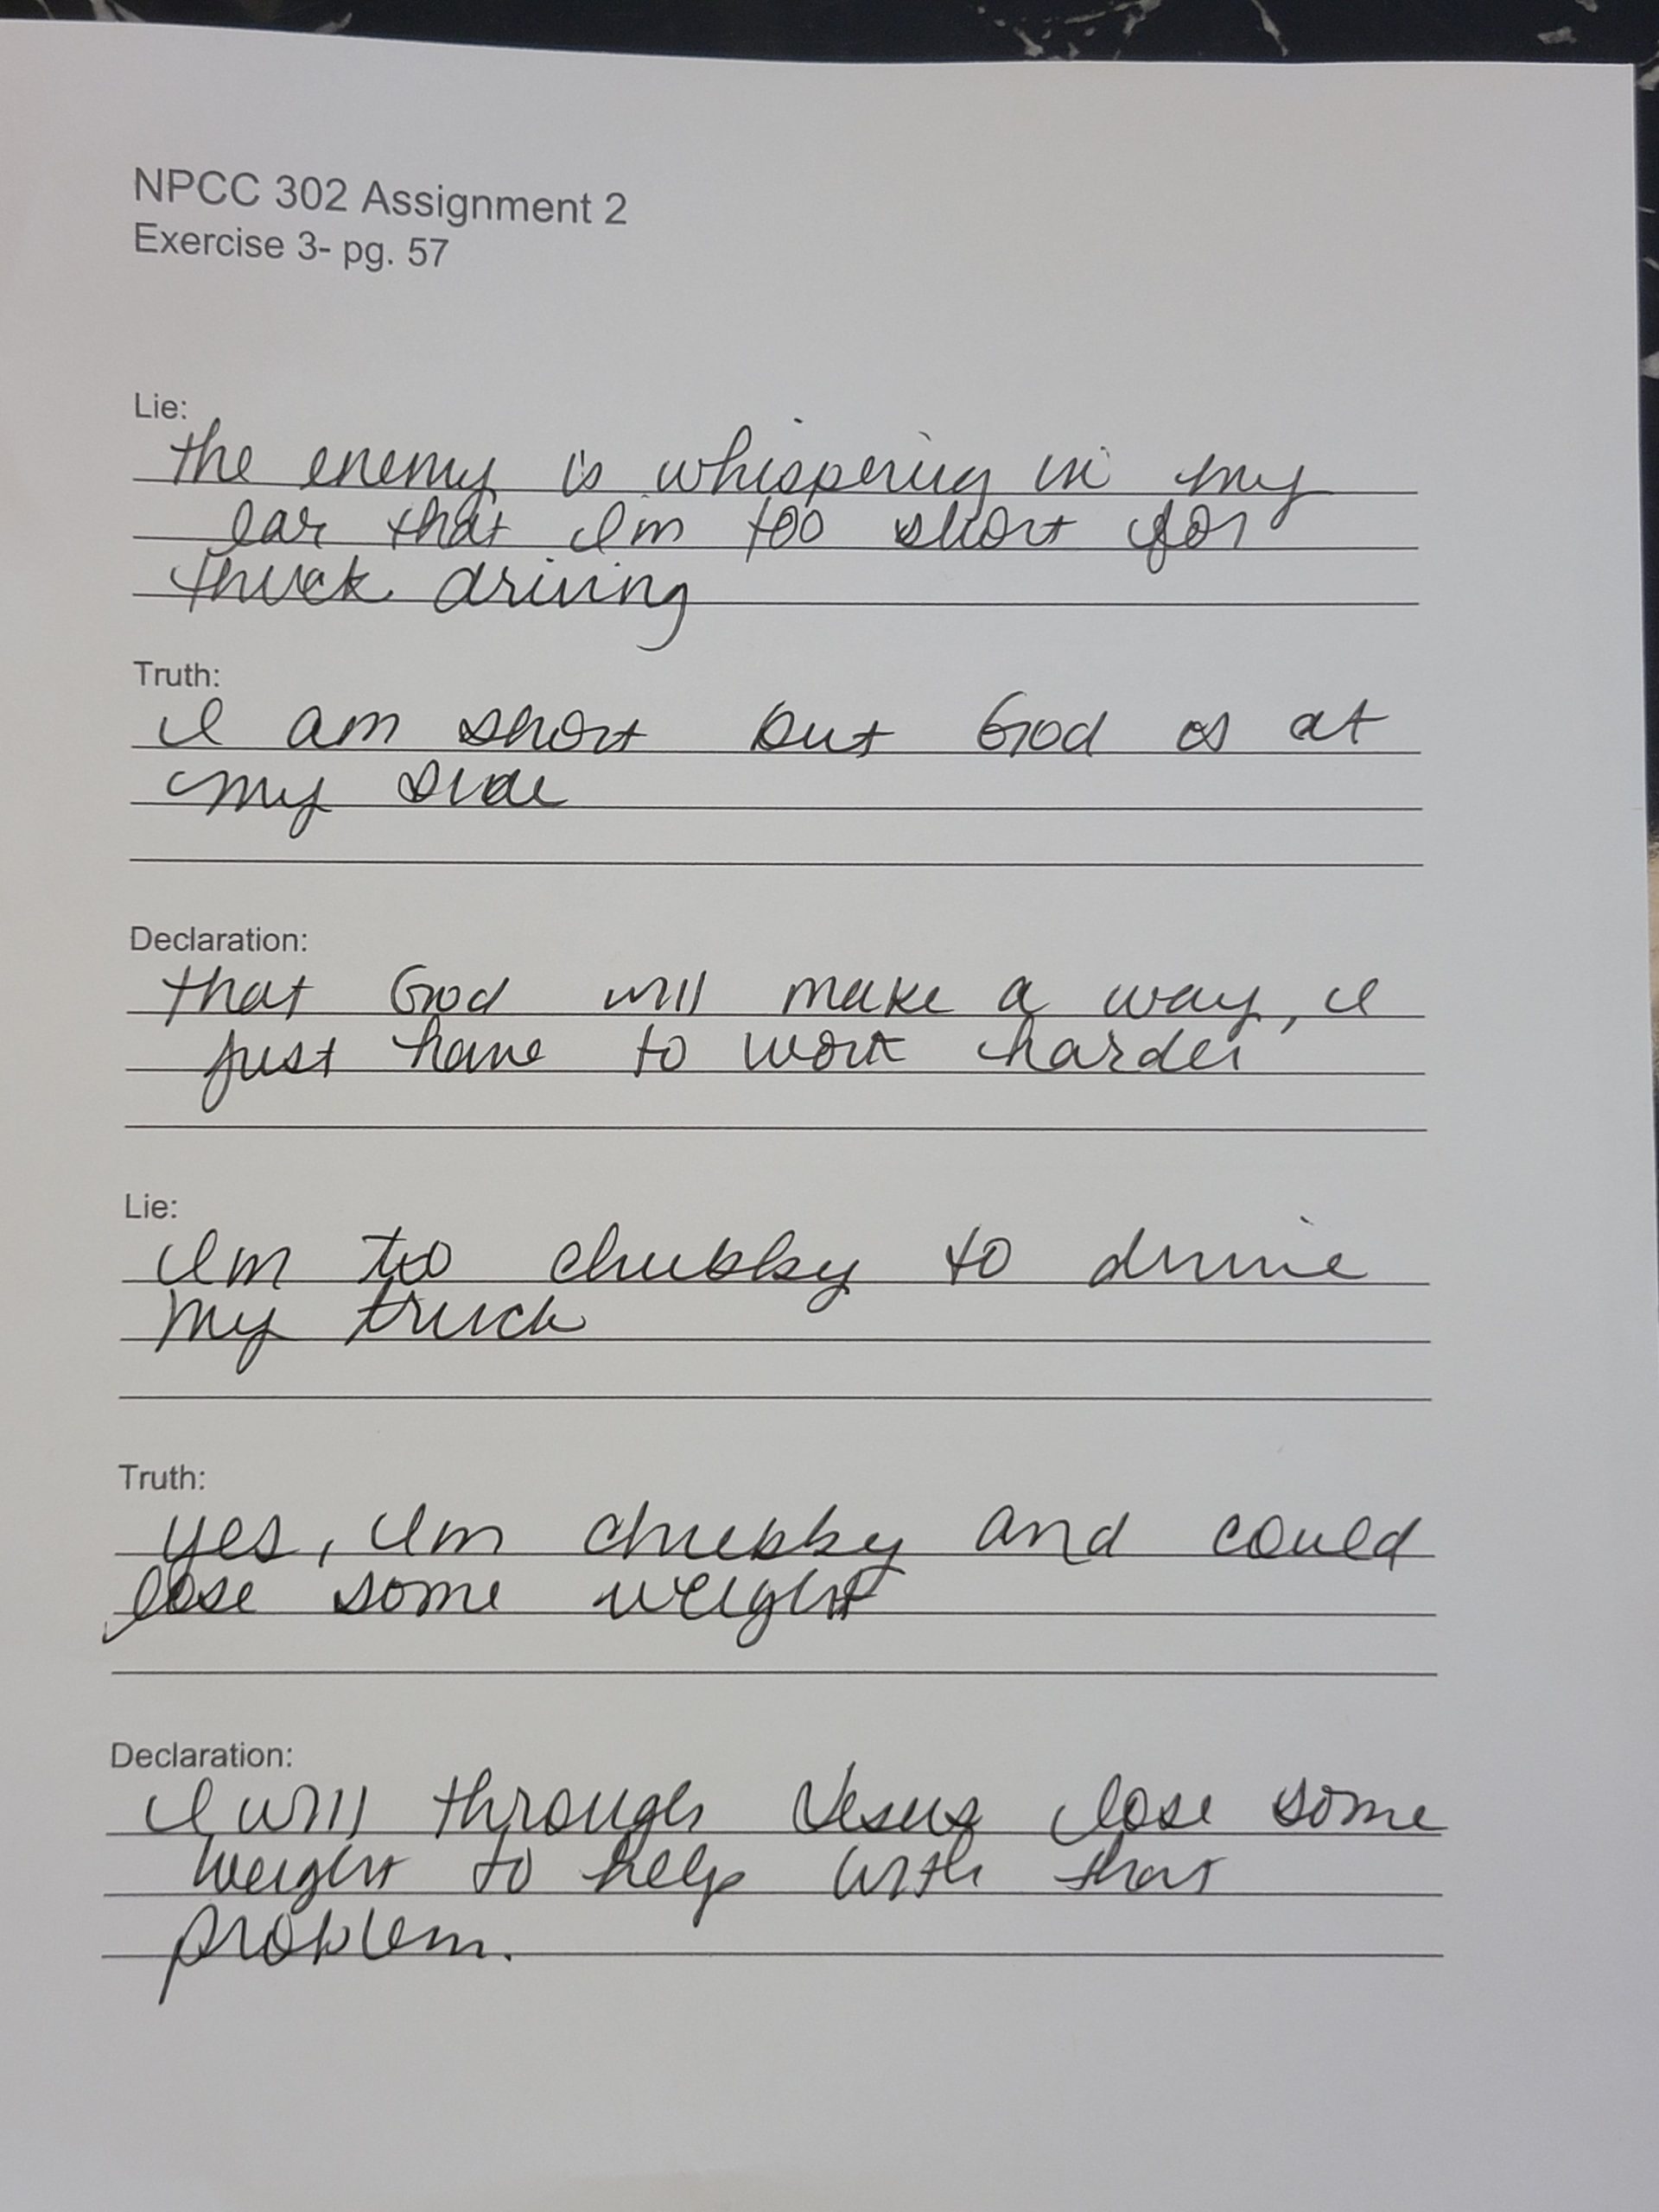 NPCC 302 Assignment 2
Exercise 3- pg. 57
Lie:
the enemy is whispering in my
ear that I'm too short for
truck driving
Truth:
I am short but God is at
my side
Declaration:
that God will make a way, I
just have to work harder
Lie:
I'm too chubby to drive
my truck
Truth:
yes, I'm chubby and could
lose some weight
Declaration:
I will through Jesus lose some
weight to help with that
problem.